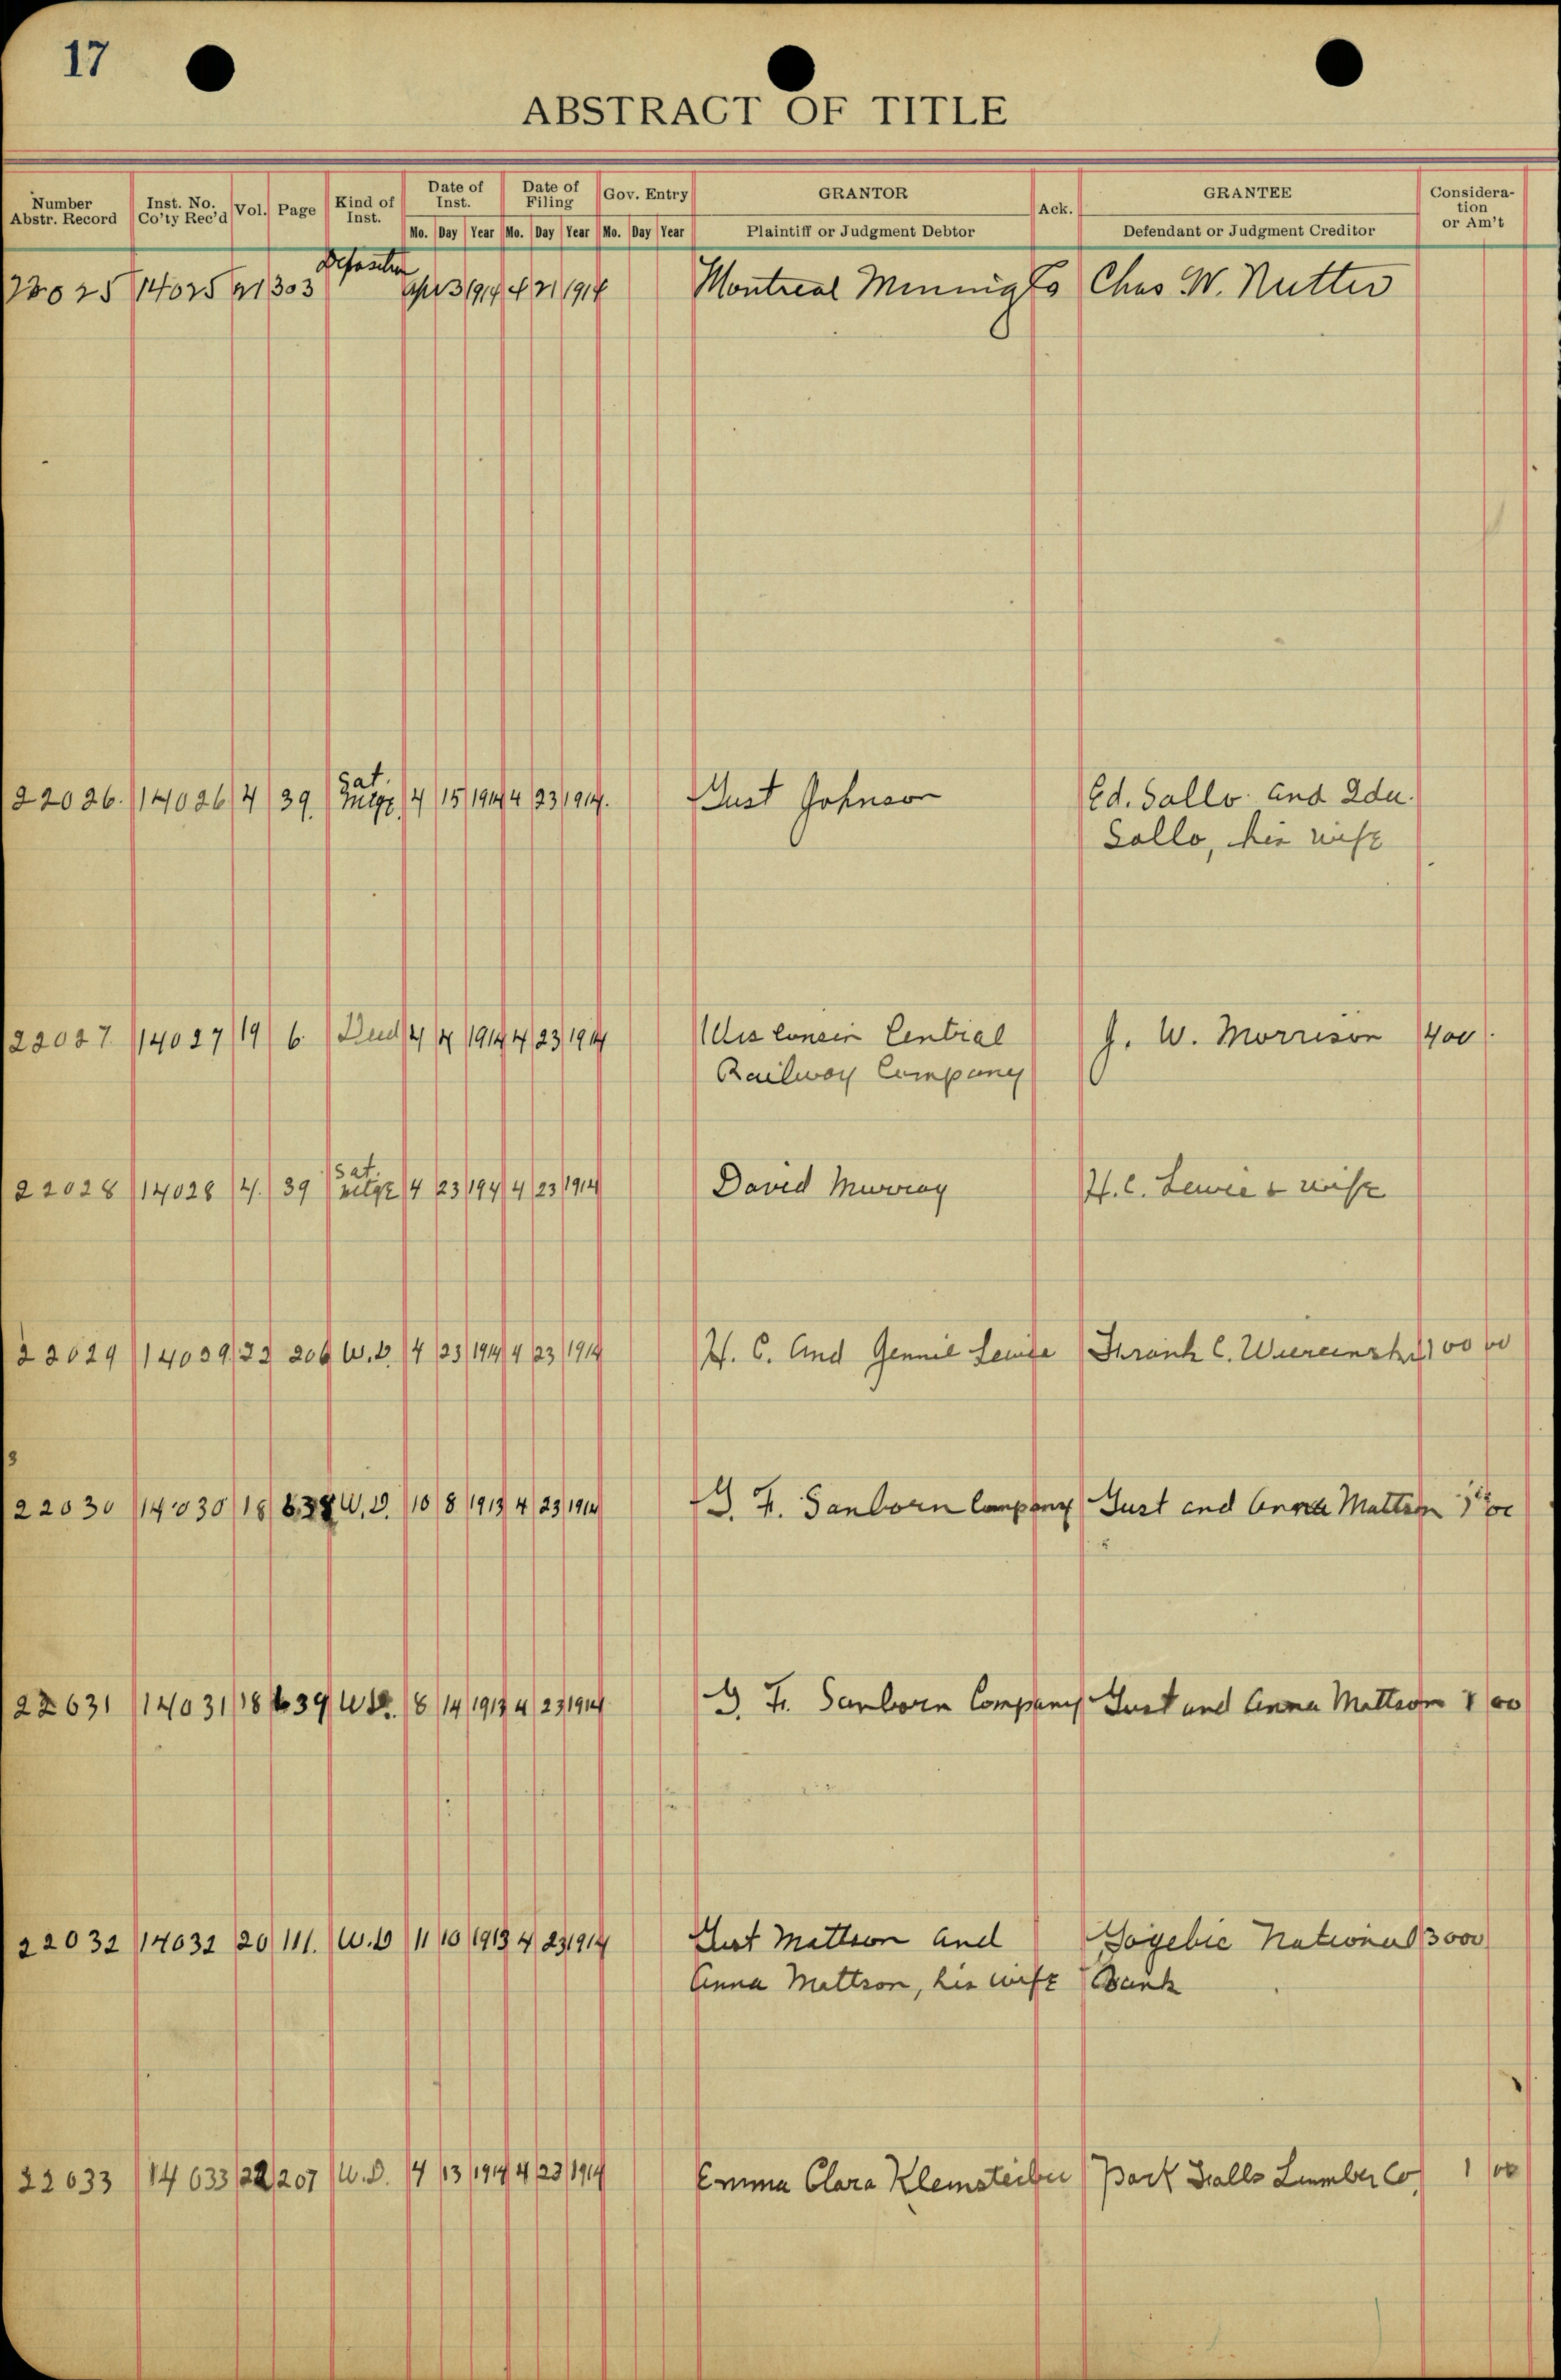 17
ABSTRACT OF TITLE
Number Abstr. Record Inst. No. Co'ty Rec'd Vol. Page Kind of Inst. Date of Inst. Date of Filing Gov. Entry GRANTOR Ack. GRANTEE Considera-tion or Am't
Mo. Day Year Mo. Day Year Mo. Day Year Plaintiff or Judgment Debtor Defendant or Judgment Creditor
22025 14025 21 303 Apr 3 1914 4 21 1914 Montreal Mining Co Chas W. Nutter
Sat.
22026. 14026 4 39. Mtge. 4 15 1914 4 23 1914. Gust Johnson Ed. Sallo and Ida
Sallo, his wife
22027 14027 19 6. Deed 4 4 1914 4 23 1914 Wisconsin Central J. W. Morrison 400
Railway Company
Sat.
22028 14028 4. 39 Mtge 4 23 194 4 23 1914 David Murray H. C. Lewie & wife
22029 14029 22 206 W.D. 4 23 1914 4 23 1914 H. C. and Gennie Lewie Frank C. 100 00
3
22030 14030 18 638 W.D. 10 8 1913 4 23 1914 G. F. Sanborn Company Gust and Anna Mattson 1 00
22031 14031 18 639 W.D. 8 14 1913 4 23 1914 G. F. Sanborn Company Gust and Anna Mattson 1 00
22032 14032 20 111. W.D 11 10 1913 4 23 1914 Gust Mattson and Gogebic National 3000
Anna Mattson, his wife Bank
22033 14033 22 207 W.D. 4 13 1914 4 23 1914 Emma Clara Kleinsteiber Park Falls Lumber Co, 1 00